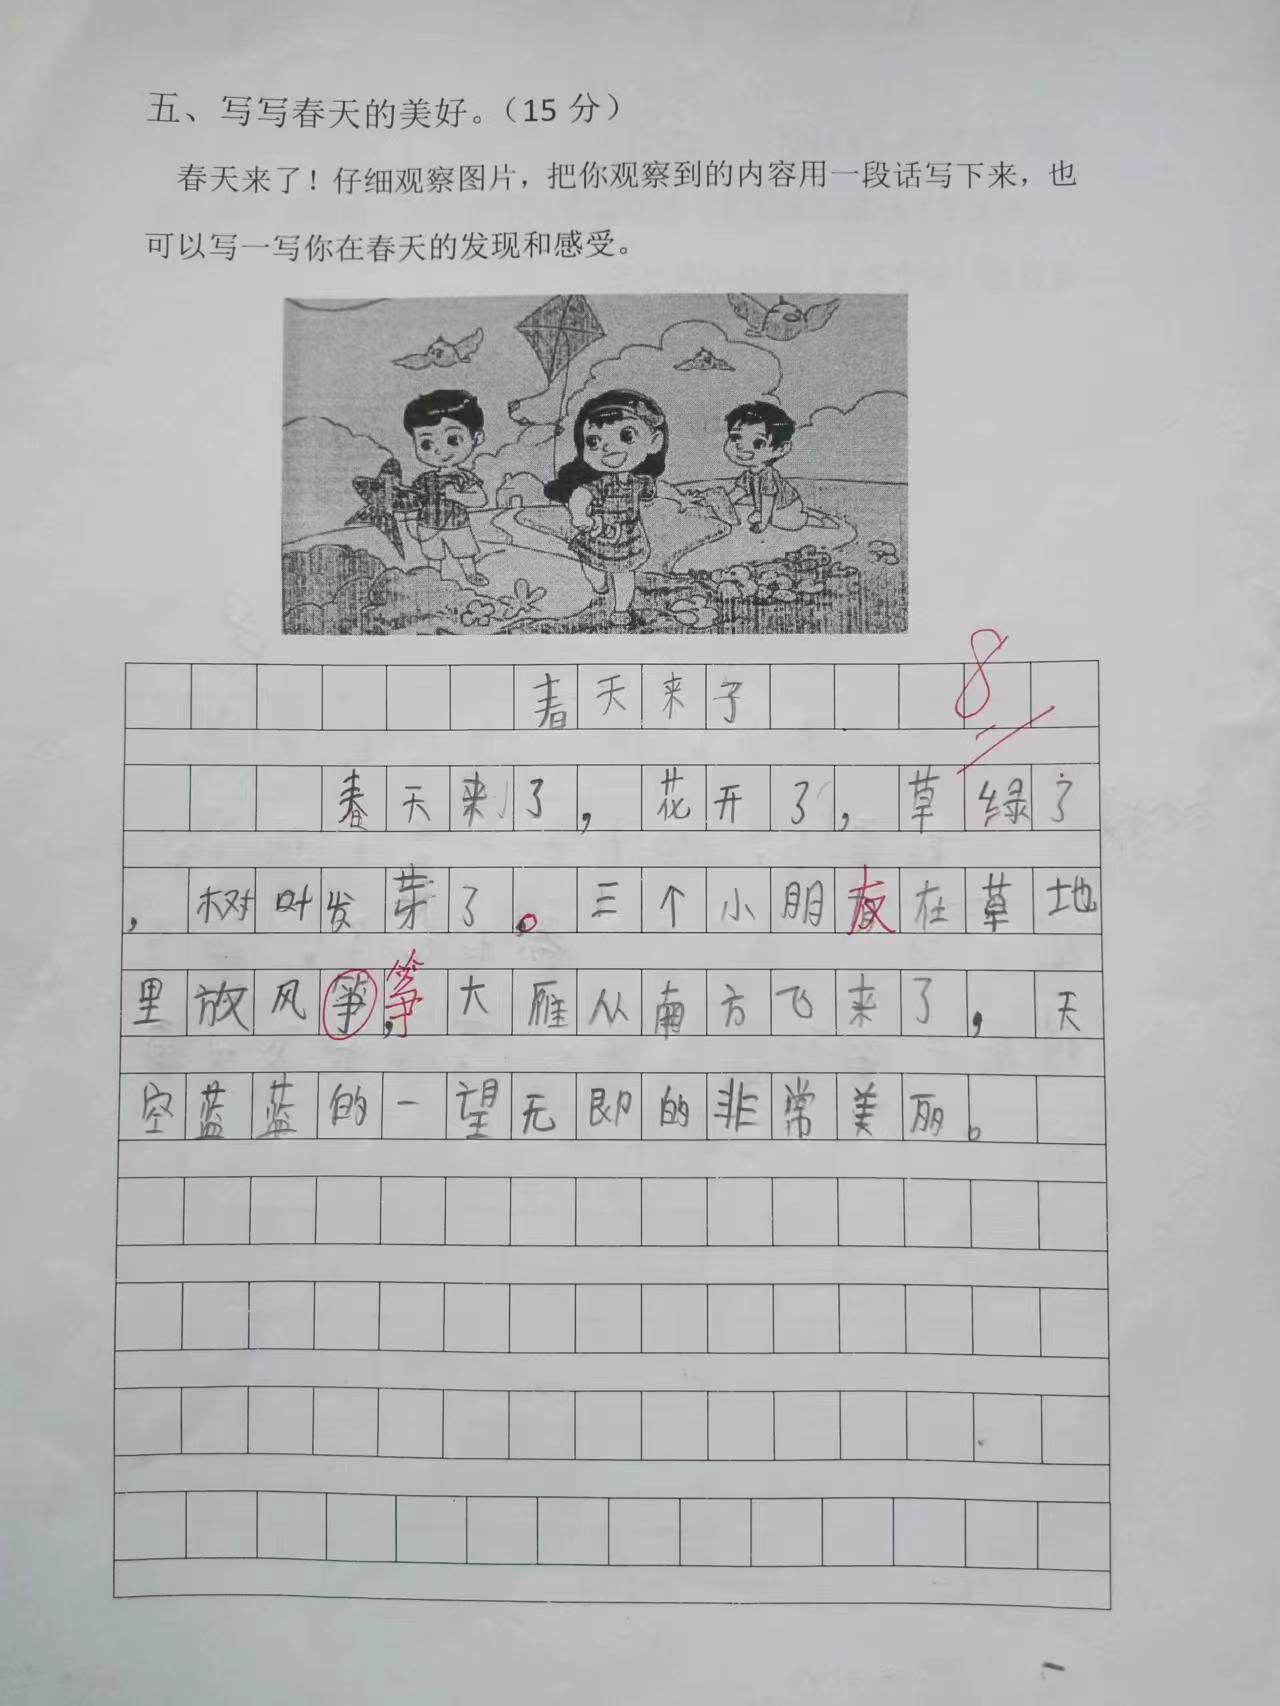 五、写写春天的美好。（15 分）
春天来了！仔细观察图片，把你观察到的内容用一段话写下来，也
可以写一写你在春天的发现和感受。
8
春天来了
春天来了，花开了，草绿了
，树叶发芽了。三个小朋友在草地
里放风筝，筝大雁从南方飞来了，天
空蓝蓝的一望无即的非常美丽。